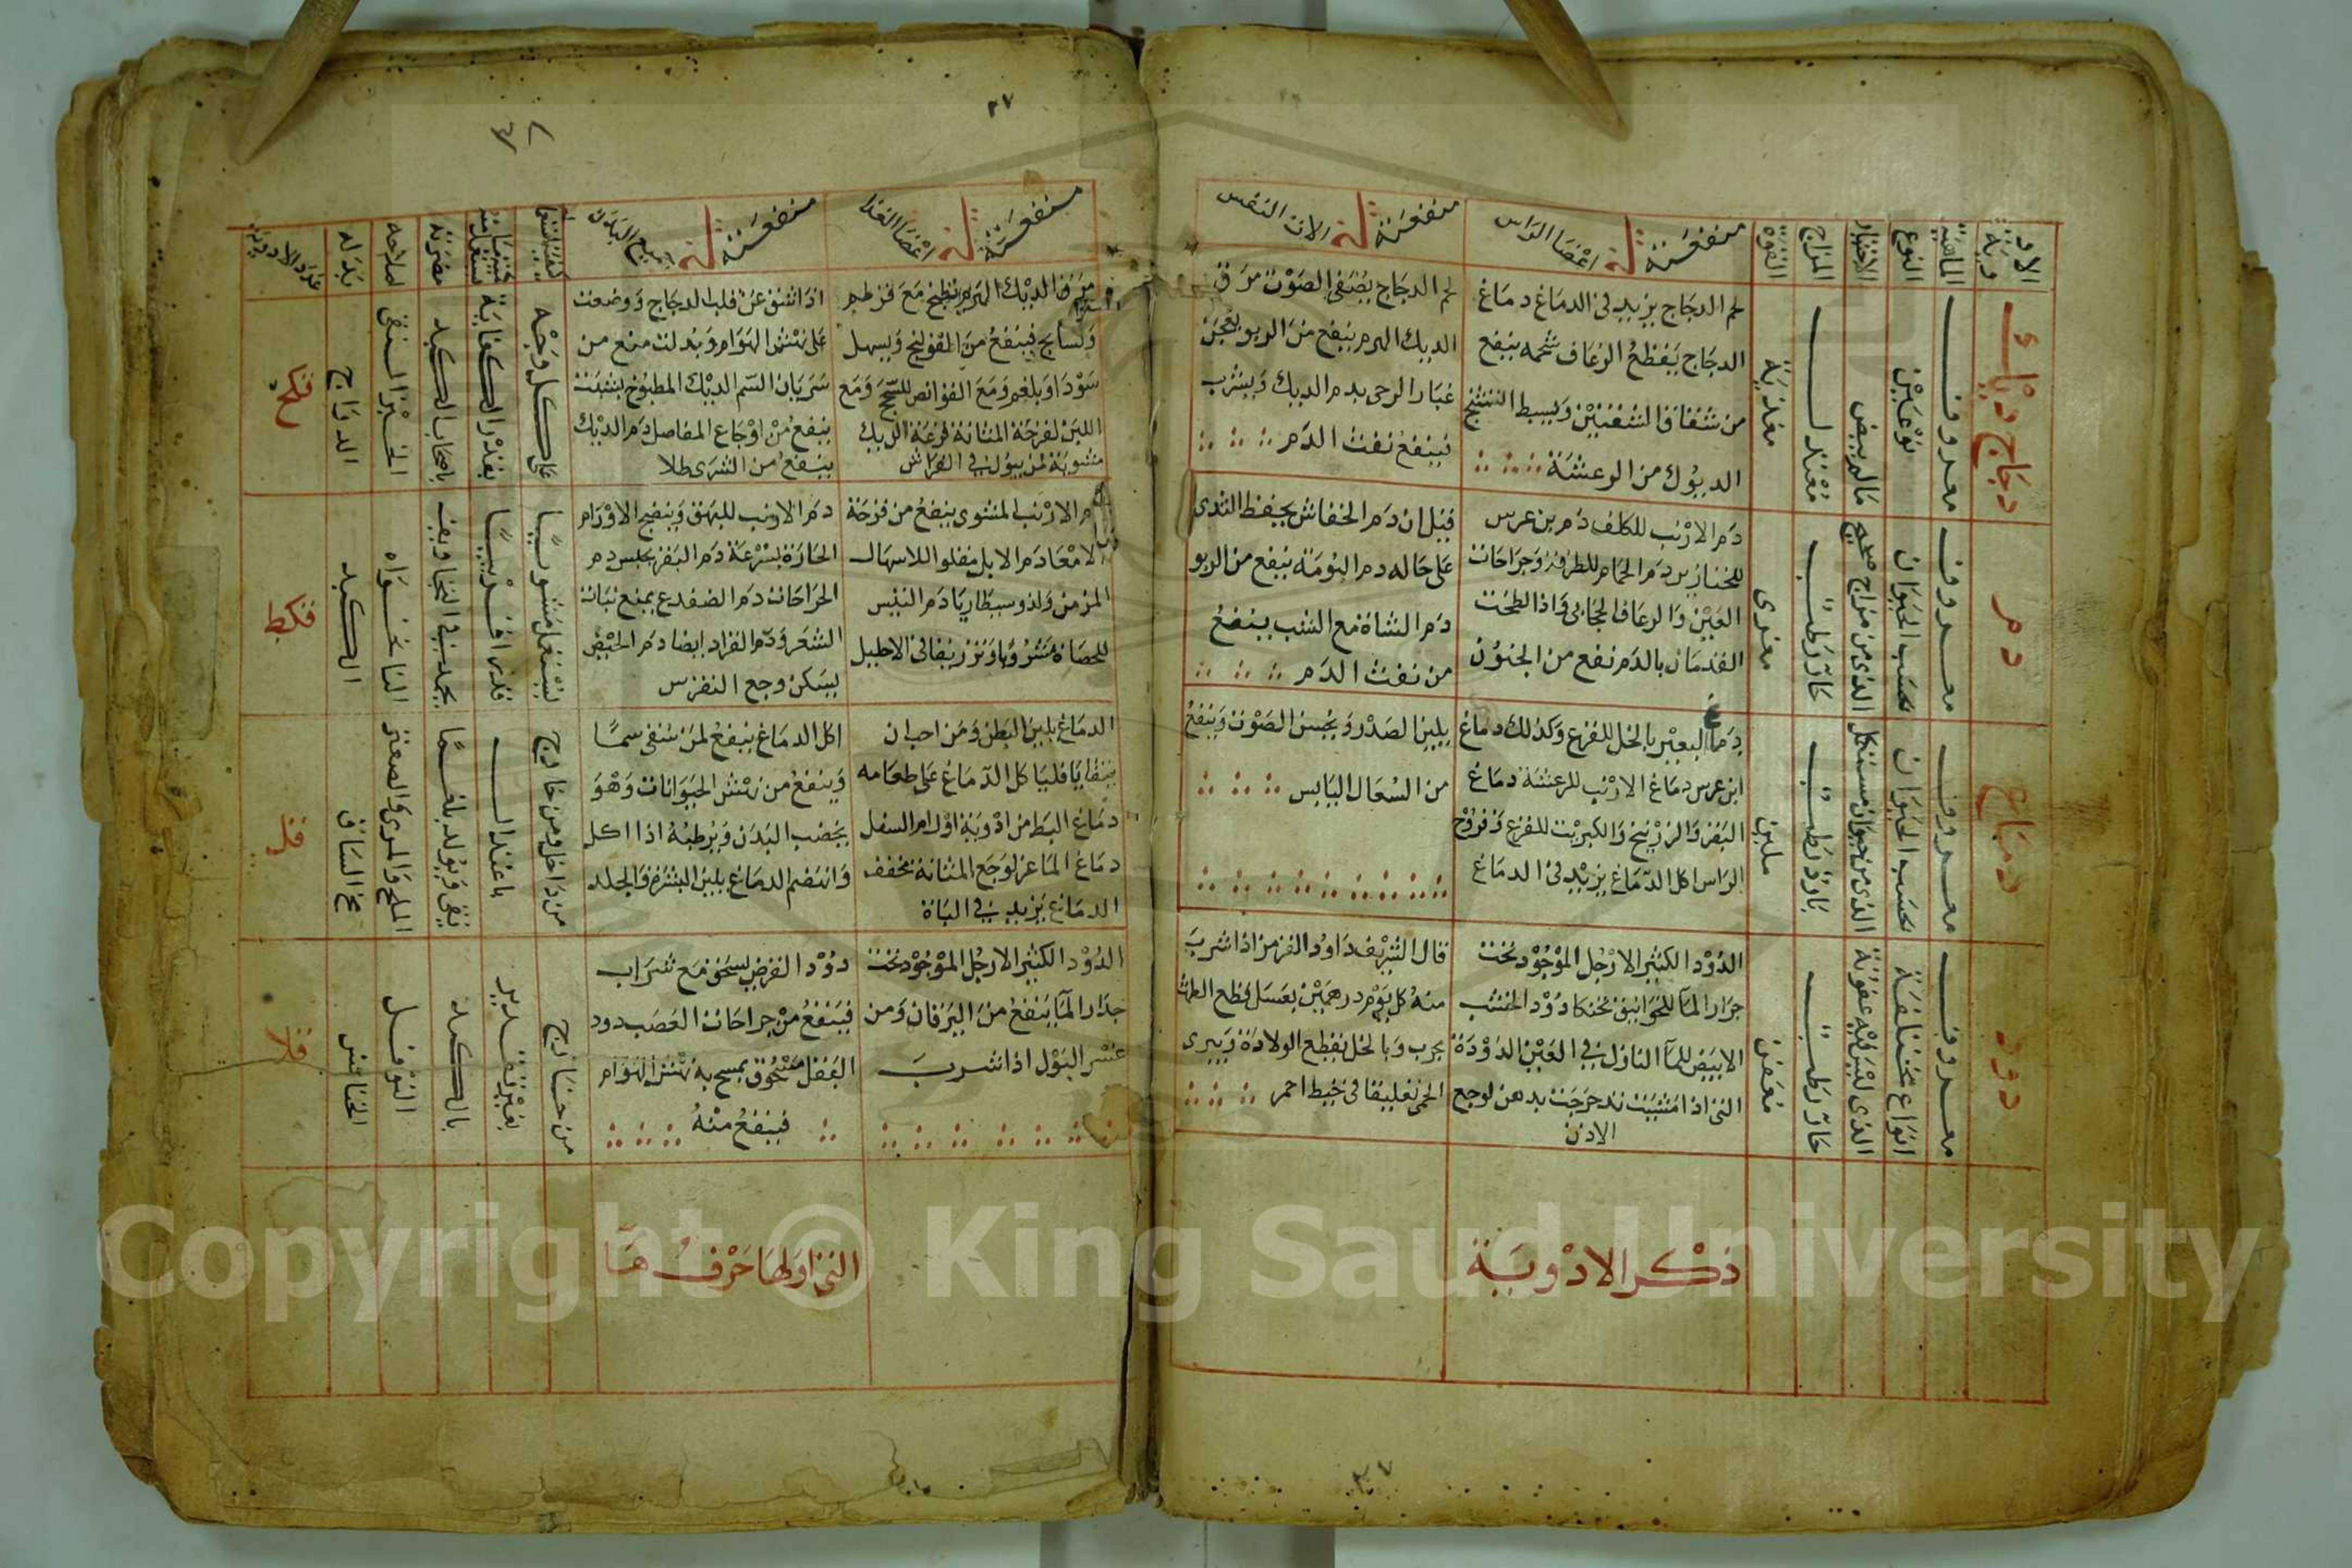 الادوية
الماهية
النوع
الاختيار
المزاج
القوة
منفعته في اعضا الراس
منفعته في الات النفس
دجاج ديك
معروف
نوعين
مالم يبيض
معتدل
مغذية
لحم الدجاج يزيد في الدماغ دماغ
الدجاج يقطع الرعاف شحمه ينفع
من شقاق الشفتين ويبسط التشنج
الديوك من الرعشة
لحم الدجاج يصفي الصوت مرق
الديك الهرم ينفع من الربو يعجن
غبار الرحى بدم الديك ويشرب
فينفع نفث الدم
دم
معروف
بحسب الحيوان
الذي من مزاج صحيح
حار رطب
مغري
دم الارنب للكلف دم بن عرس
للخنازير دم الحمام للطرفة وجراحات
العين والرعاف الحجابي واذا لطخت
القدمان بالدم نفع من الجنون
قيل ان دم الخفاش يحفظ الثدي
على حاله دم البومة ينفع من الربو
دم الشاة مع الشب ينفع
من نفث الدم
دماغ
معروف
بحسب الحيوان
الذي من حيوان مستكمل
بارد رطب
ملين
دماغ البعير بالخل للفزع وكذلك دماغ
ابن عرس دماغ الارنب للرعشة دماغ
البقر والزرنيخ والكبريت للقرع وقروح
الراس اكل الدماغ يزيد في الدماغ
يلين الصدر ويحسن الصوت وينفع
من السعال اليابس
دود
معروف
انواع مختلفة
الذي ليس فيه عفونة
حار رطب
معفن
الدود الكثير الارجل الموجود تحت
جرار الما للخوانيق تحنكا دود الخشب
الابيض للما النازل في العين الدودة
التي اذا مشيت تدحرجت بدهن لوجع
الاذن
قال الشريف داود القرمز اذا شرب
منه كل يوم درهمين بعسل قطع الطمث
مجرب وبالخل يقطع الولادة ويبري
الحمى تعليقا في خيط احمر
ذكر الادوية
٢٧
منفعته في اعضا الغذا
منفعته في جميع البدن
كيفية استعماله
كمية ما يستعمل منه
مضرته
اصلاحه
بدله
عدد الادوية
مرق الديك الهرم يطبخ مع قرطم
وبسبايج فينفع من القولنج ويسهل
سودا وبلغم ومع القوابض للسحج ومع
اللبن لقرحة المثانة قرعة الديك
مشوية لمن يبول في الفراش
اذا شق عن قلب الدجاج ووضعت
على نهش الهوام وبدلت منع من
سريان السم الديك المطبوخ بشبت
ينفع من اوجاع المفاصل دم الديك
ينفع من الشرى طلا
على كل وجه
بقدر الكفاية
باصحاب الكبد
الخبز السفتي
الدراج
قكح
دم الارنب المشوي ينفع من قرحة
الامعا دم الايل مقلوا للاسهال
المزمن ولذوسنطاريا دم التيس
للحصاة مشروبا وتزريقا في الاحليل
دم الارنب للبهق وينضج الاورام
الحارة بسرعة دم البقر يحبس دم
الجراحات دم الضفدع يمنع نبات
الشعر ودم القراد ايضا دم الحيض
يسكن وجع النقرس
يستعمل مشويا
قدرا قريبا
النانخواه
الكبد
قكط
الدماغ يلين البطن ومن احب ان
يتقايا فليا كل الدماغ على طعامه
دماغ البط من ادوية اورام السفل
دماغ الماعز لوجع المثانة مجفف
الدماغ يزيد في الباة
اكل الدماغ ينفع لمن سقي سما
وينفع من نهش الحيوانات وهو
يخصب البدن ويرطبه اذا اكل
وانهضم الدماغ يلين البشرة والجلد
من داخل ومن خارج
باعتدال
يقي ويولد بلغما
الملح والمري والصعتر
مخ الساق
قل
الدود الكثير الارجل الموجود تحت
جرار الما ينفع من اليرقان ومن
عسر البول اذا شرب
دود القرض يسحق مع شراب
فينفع من جراحات العصب دود
البقل مسحوق يمسح به نهش الهوام
فينفع منه
من خارج
بغير تقدير
بالكبد
النوفل
الخنافس
قلا
التي اولها حرف ها
Copyright © King Saud University